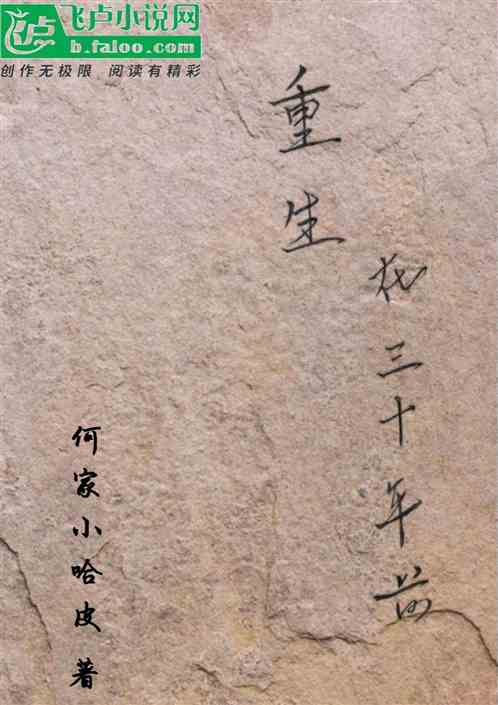 飞卢小说网
b.faloo.com
创作无极限 阅读有精彩
重生
在三十年前
何家小哈皮 著